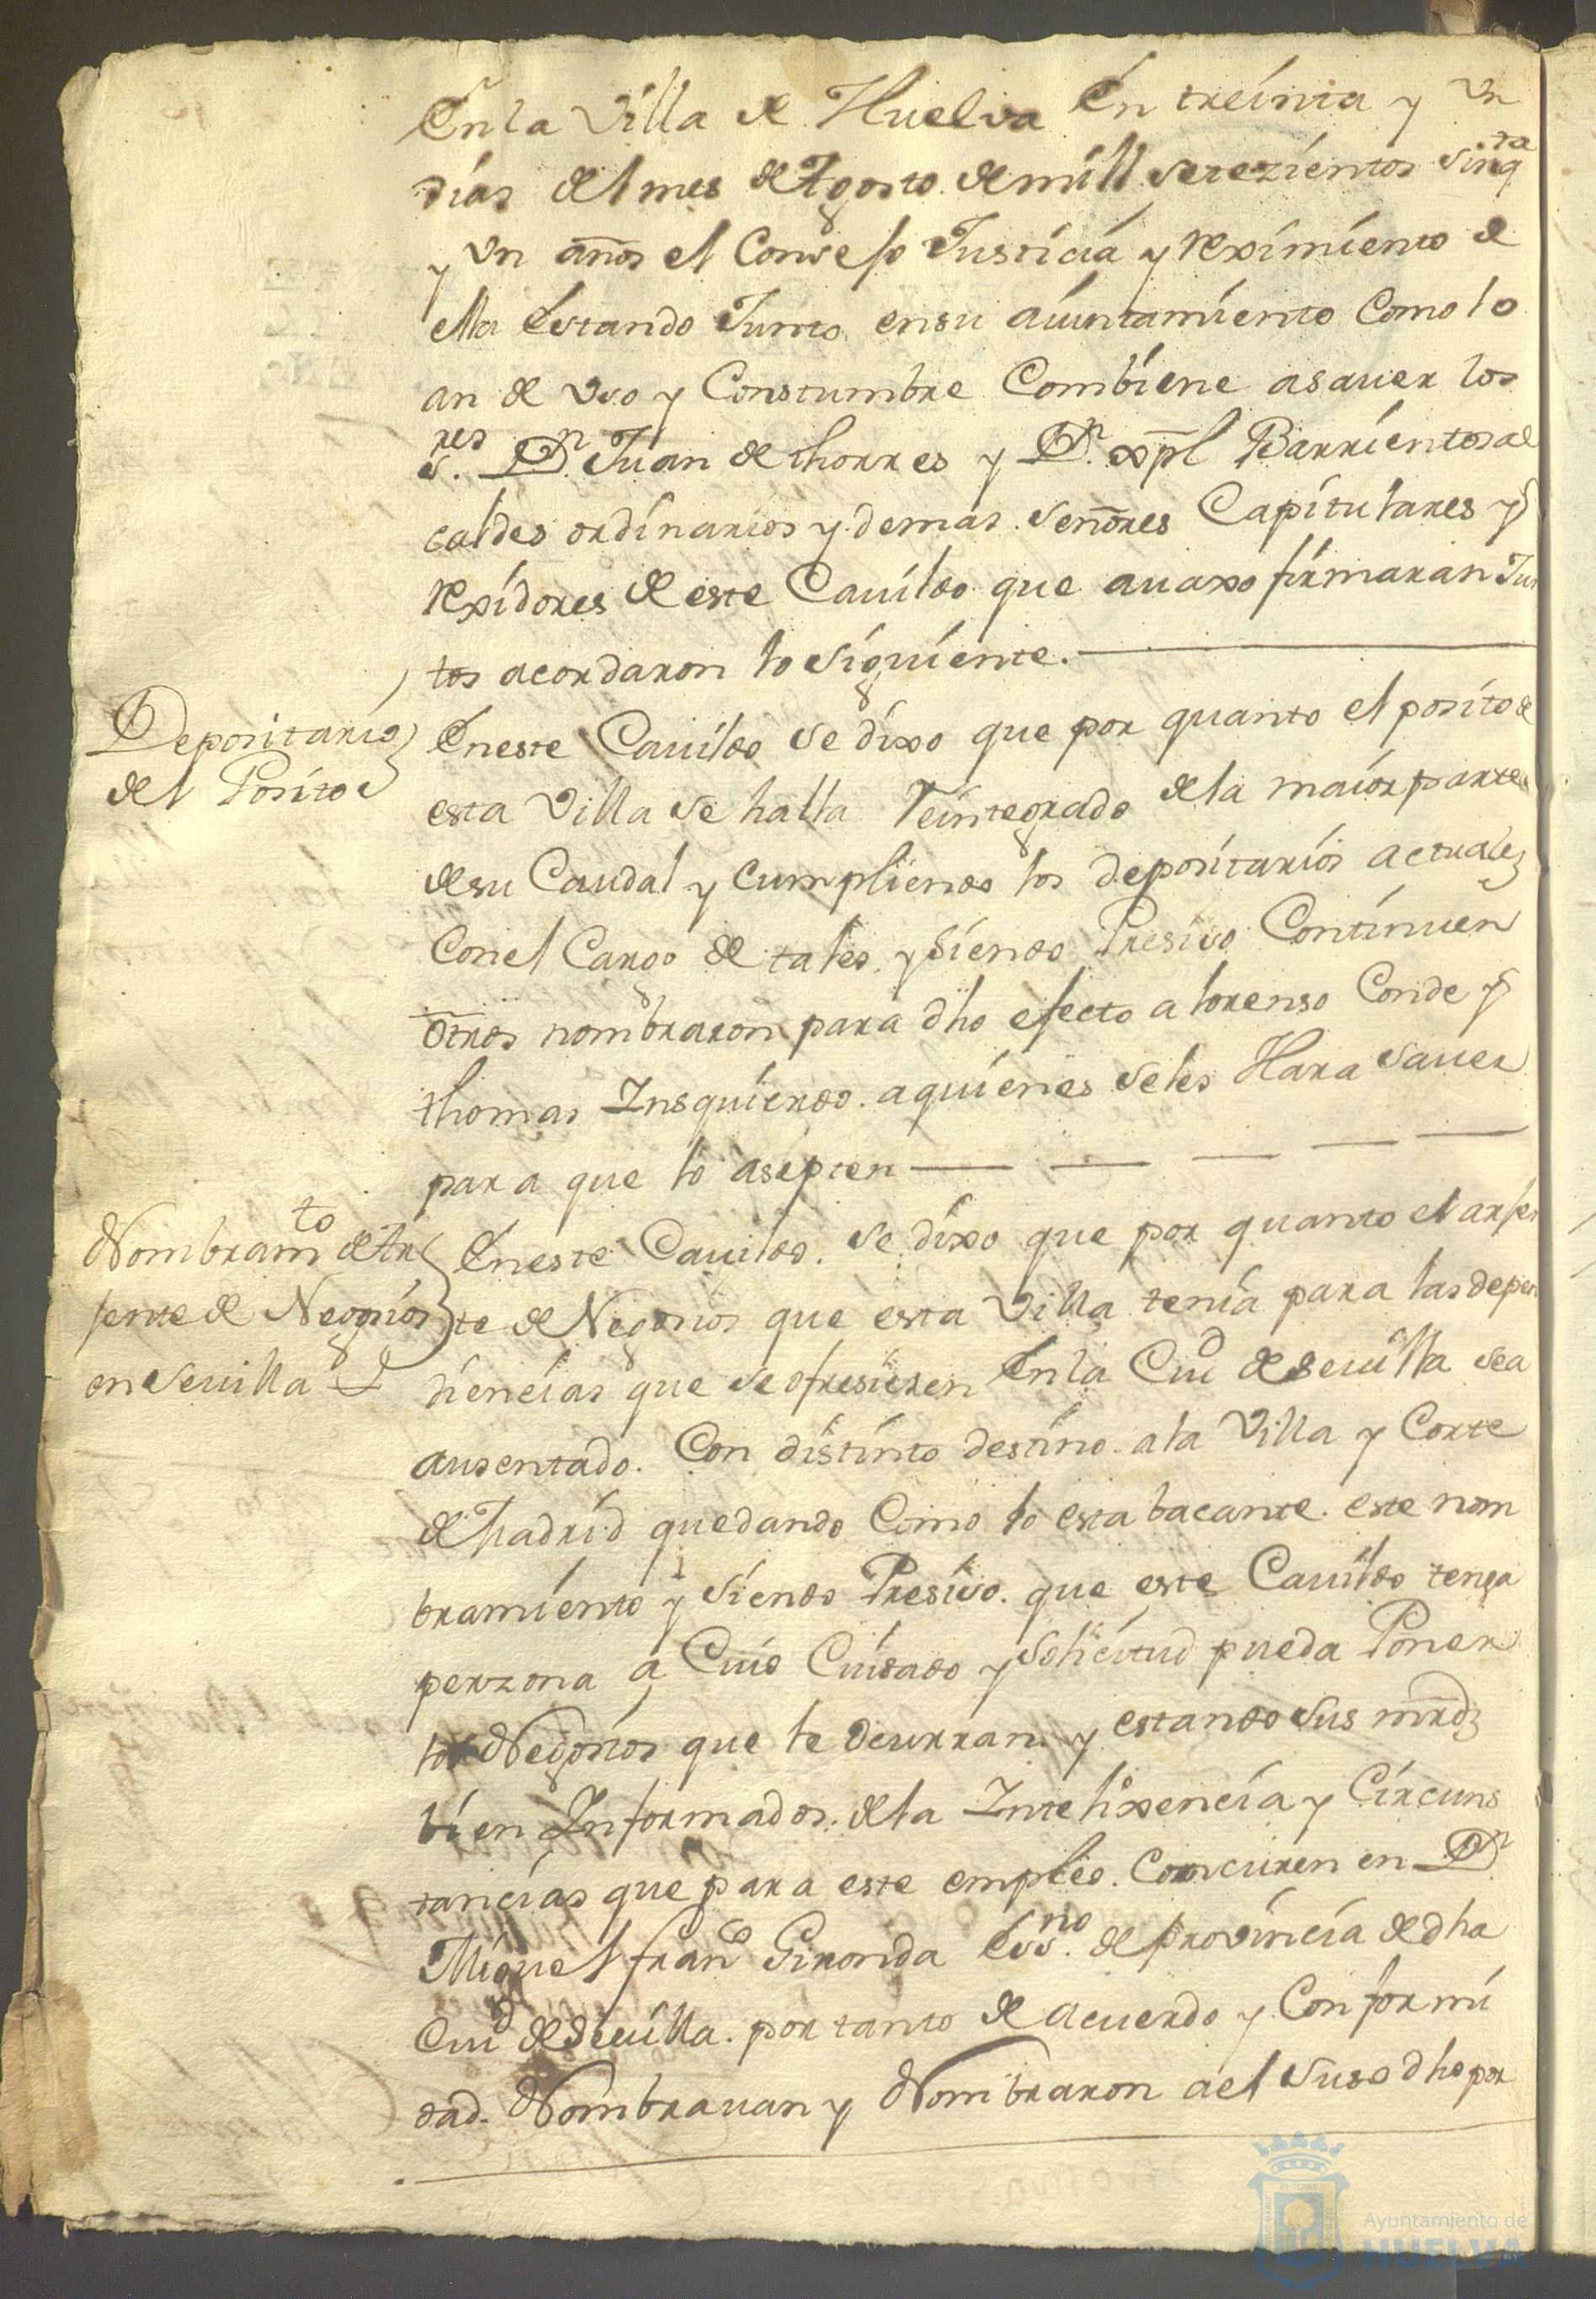 En la Villa de Huelva En treinta y Un
dias del mes de Agosto de mill setezientos sinqta
y Un años el Consejo Justicia y reximiento de
ella Estando Junto en su aiuntamiento Como lo
an de Uso y Constumbre Combiene a sauer los
sres. Dn. Juan de thorres y Dn. xpl Barrientos al
caldes ordinarios y demas señores Capitulares y
rexidores de este Cauildo que auaxo firmaran Jun
tos acordaron lo siguiente.
Depositarios
del Posito
En este Cauildo se dixo que por quanto el posito de
esta Villa se halla reintegrado de la maior parte
de su Caudal y cumpliendo los depositarios actuales
Con el Cargo de tales, y siendo Presiso Continuen
otros nombraron para dho efecto a lorenso Conde y
thomas Insquierdo. a quienes se les Hara sauer
para que lo asepten
Nombramto de Ax
jente de Negosios
en Seuilla
En este Cauildo. se dixo que por quanto el axjen
te de Negosios que esta Villa tenia para las depen
diencias que se ofresieren En la Ciud de Seuilla sea
ausentado. Con distinto destino a la Villa y Corte
de Madrid quedando Como lo esta bacante este nom
bramiento y siendo Presiso. que este Cauildo tenga
perzona a Cuio Cuidado y Solicitud pueda Poner
los Negosios que le ocurran y estando sus mrdz
bien Informados. de la Intelixencia y Circuns
tancias que para este empleo. Concurren en Dn
Miguel Franco Gironda Essno. de provincia de dha
Ciud de Seuilla. por tanto de acuerdo y Conformi
dad. Nombrauan y Nombraron a el suso dho por
Ayuntamiento de
HUELVA